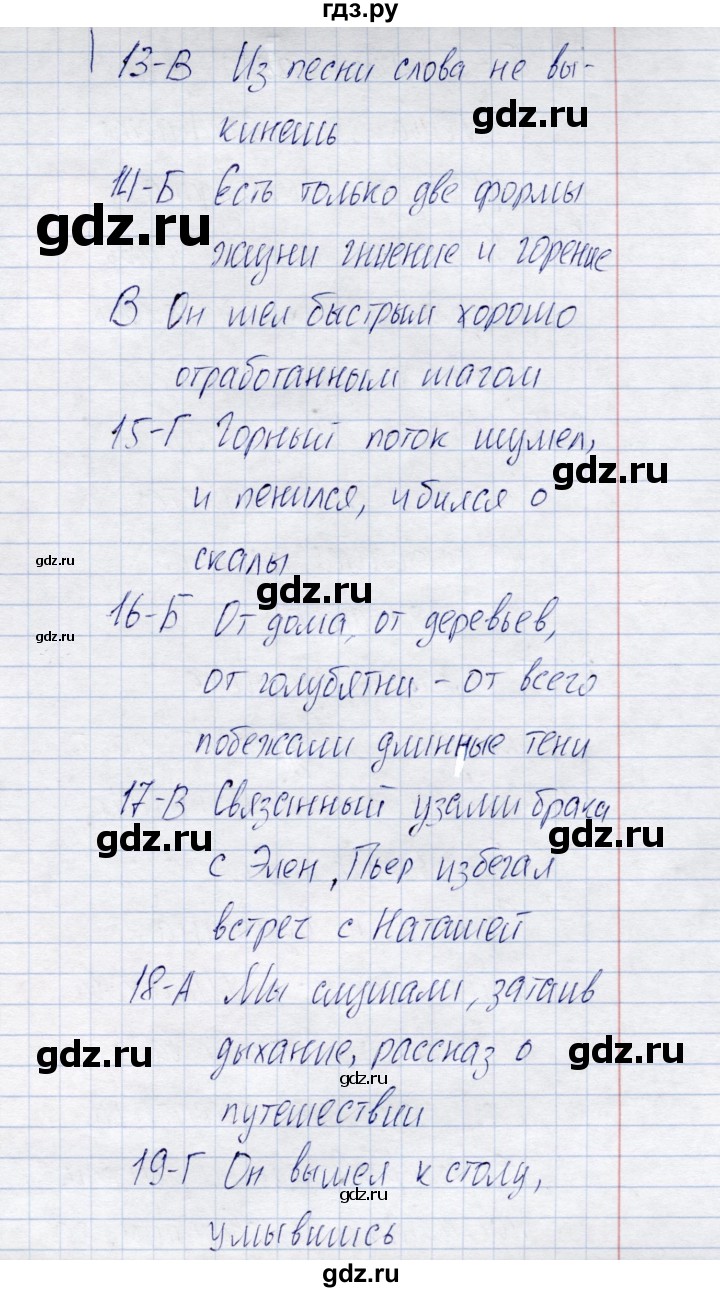 гдз.ру
13-В Из песни слова не вы-
gdz.ru
кинешь
14-Б Есть только две формы
gdz.ru
жизни гниение и горение
В Он шел быстрым хорошо
отработанным шагом
15-Г Горный поток шумел,
gdz.ru
и пенился, и бился о
скалы
gdz.ru
gdz.ru
16-Б От дома, от деревьев,
gdz.ru
от голубятни - от всего
побежали длинные тени
17-В Связанный узами брака
gdz.ru
gdz.ru
с Элен, Пьер избегал
встреч с Наташей
18-А Мы слушали, затаив
gdz.ru
дыхание, рассказ о
gdz.ru
gdz.ru
путешествии
19-Г Он вышел к столу,
gdz.ru
умывшись
gdz.ru